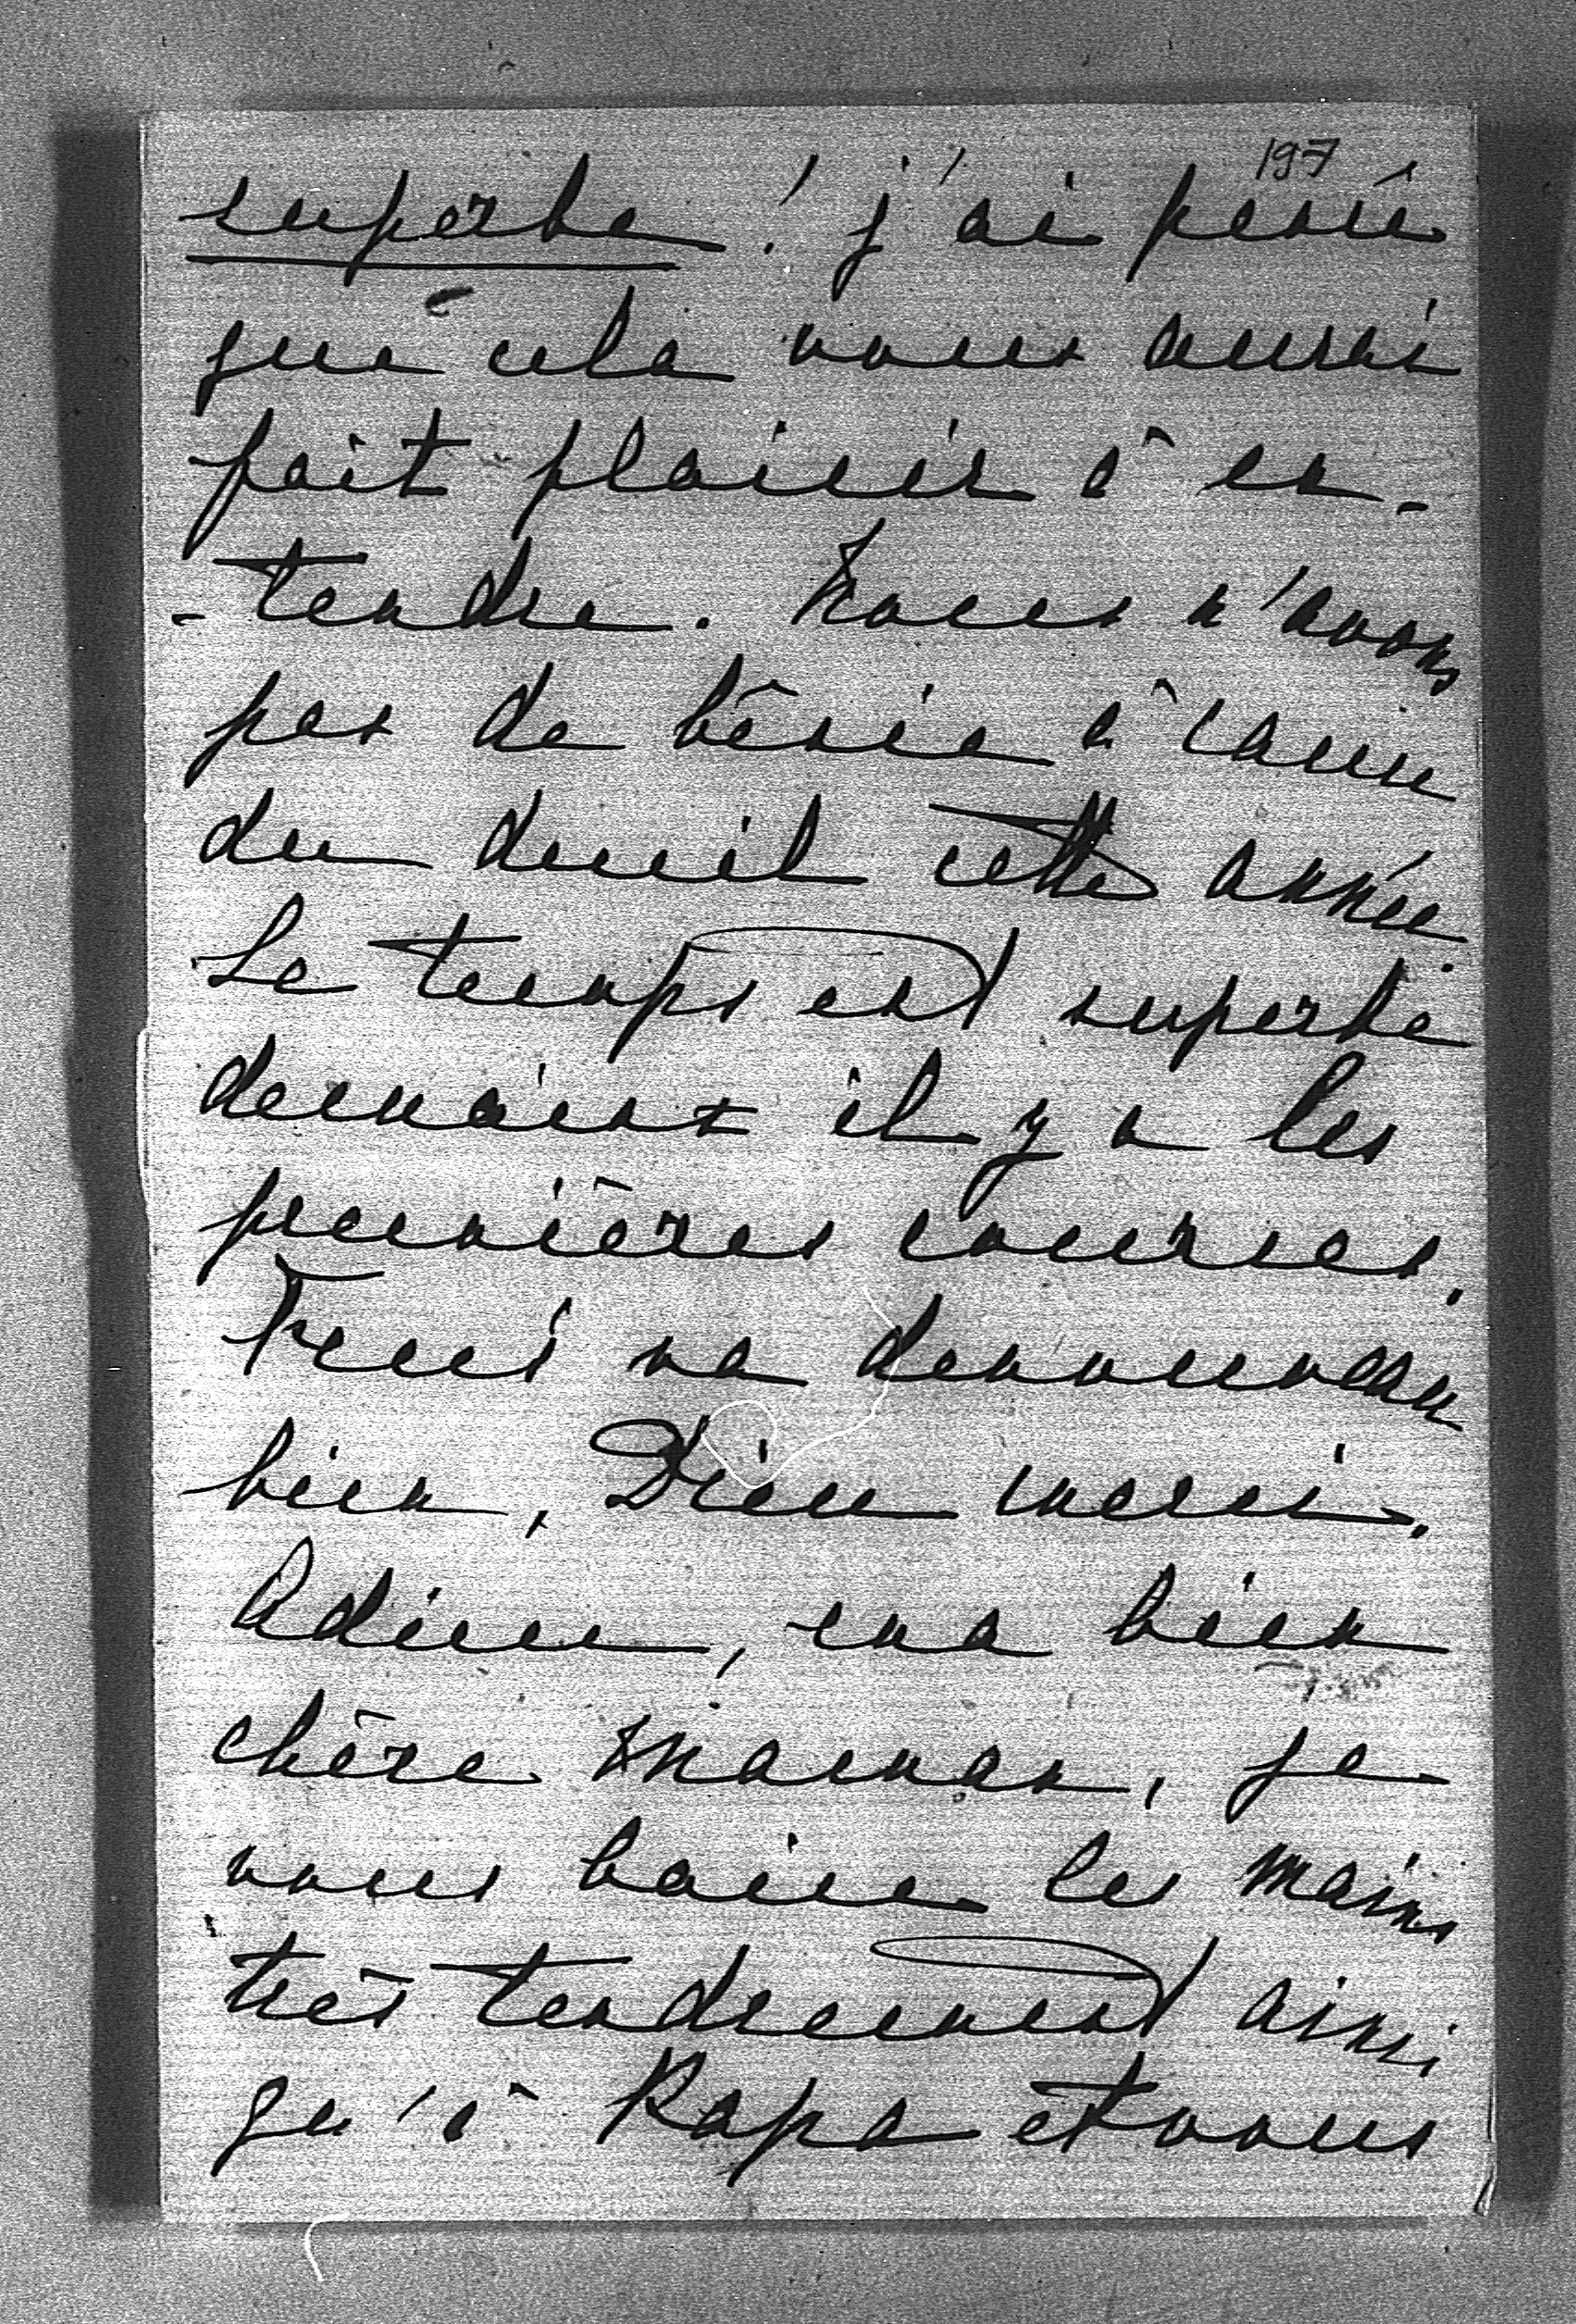 197
superbe! j'ai pensé
que cela vous aurai
fait plaisir à en-
-tendre. Nous n'avons
pas de à cause
du deuil cette année.
Le temps est superbe
demain il y a les
premières courses.
va denouveau
bien, Dieu merci.
Adieu, ma bien
chère Maman, je
vous baise les mains
très tendrement ainsi
qu'à Papa et vous